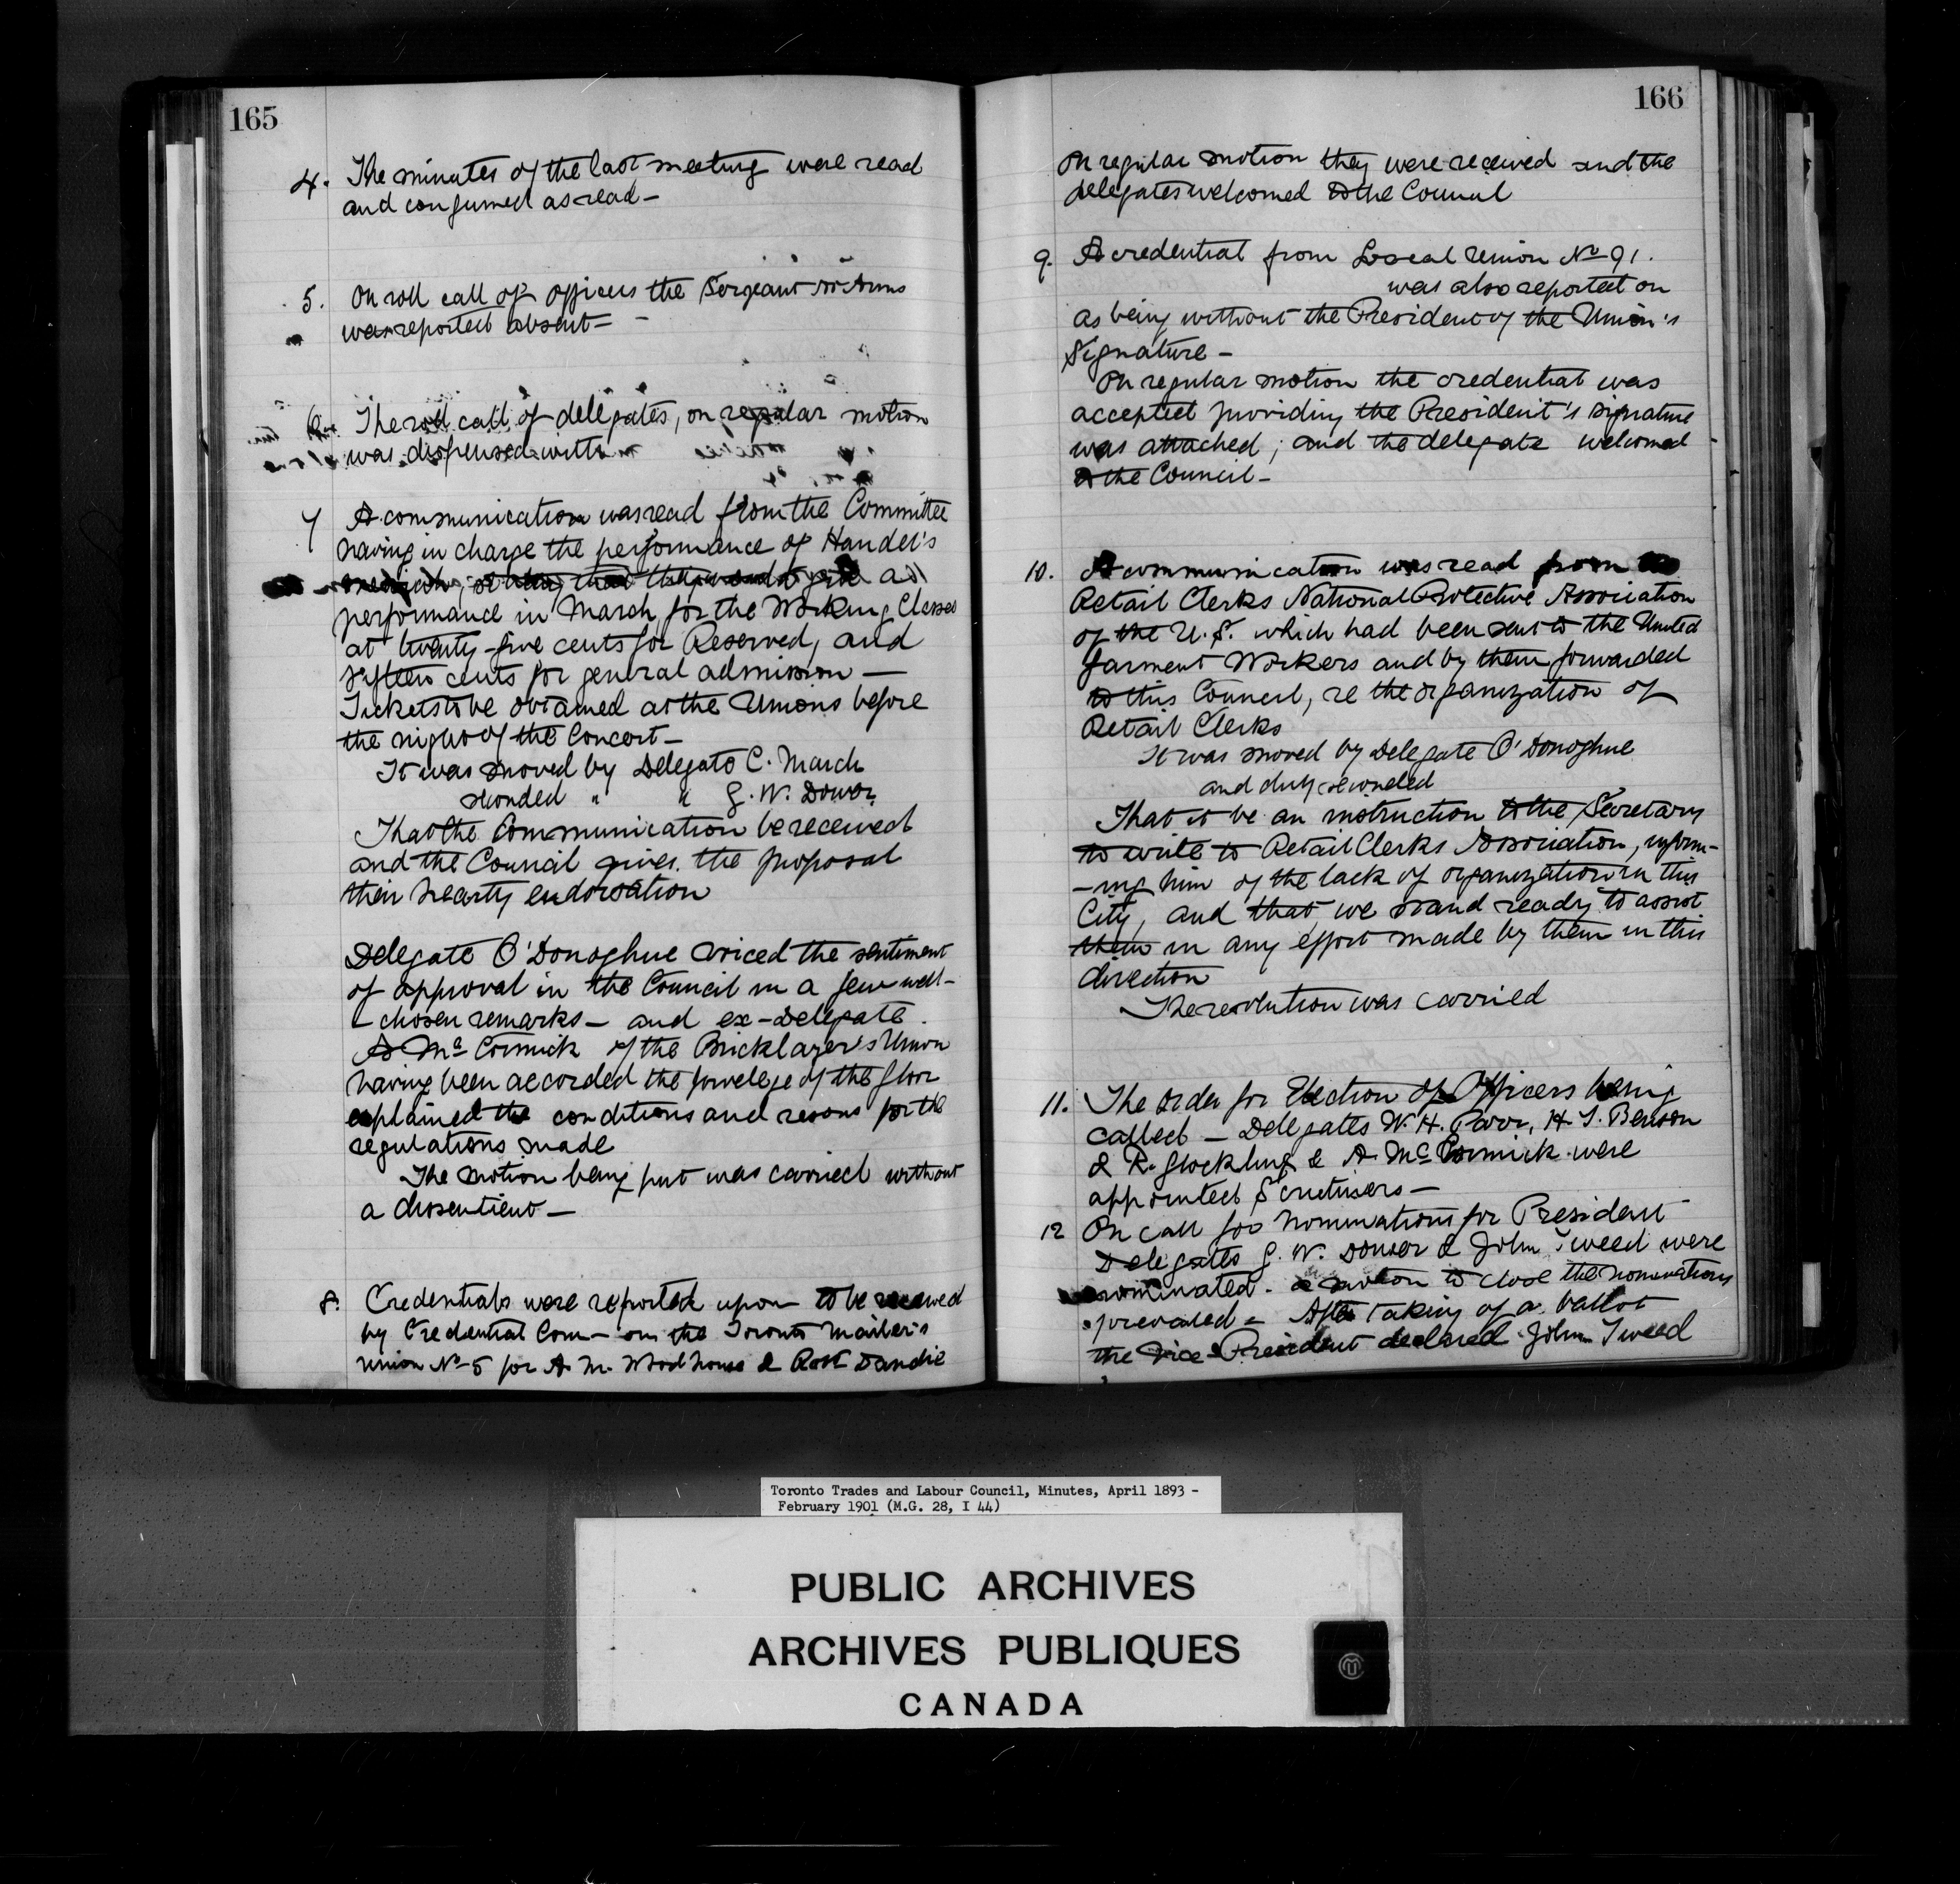 165
4. The minutes of the last meeting were read
and confirmed as read —
5. On roll call of officers the Sergeant at Arms
was reported absent —
6. The roll call of delegates, on regular motion
was dispensed with
7 A communication was read from the Committee
having in charge the performance of Handel's
a
performance in March, for the Working Classes
at twenty-five cents for Reserved, and
fifteen cents for general admission —
Tickets to be obtained at the Unions before
the night of the Concert —
It was moved by Delegate C. March
seconded " " G. W. Dower
That the Communication be received
and the Council gives the proposal
their hearty endorsation
Delegate O'Donoghue voiced the sentiment
of approval in the Council in a few well-
- chosen remarks — and ex-Delegate
A McCormick of the Bricklayer's Union
having been accorded the privelege of the floor
explained the conditions and resons for the
regulations made
The motion being put was carried without
a dissentient —
8. Credentials were reported upon to be received
by Credential Com — on the Toronto Mailer's
Union No 5 for A. M. Woodhouse & Robt Dandie
166
On regular motion they were received and the
delegates welcomed to the Council
9. A credential from Local Union No 91.
was also reported on
as being without the President of the Union's
Signature —
On regular motion the credential was
accepted providing the President's signature
was attached; and the delegate welcomed
to the Council —
10. A communication was read from the
Retail Clerks National Protective Association
of the U.S. which had been sent to the United
Garment Workers and by them forwarded
to this Council, re the organization of
Retail Clerks
It was moved by Delegate O'Donoghue
and duly seconded
That it be an instruction to the Secretary
to write to Retail Clerks Association, inform-
-ing him of the lack of organization in this
City, and that we stand ready to assist
them in any effort made by them in this
direction
The resolution was carried
11. The order for Election of Officers being
called — Delegates W. H. Parr, H. T. Benson
& R. Glockling & A. McCormick were
appointed Scrutisers —
12 On call for nominations for President
Delegates G. W. Dower & John Tweed were
nominated - a motion to close the nominations
prevailed - After taking of a ballot
the Vice-President declared John Tweed
Toronto Trades and Labour Council, Minutes, April 1893 -
February 1901 (M.G. 28, I 44)
PUBLIC ARCHIVES
ARCHIVES PUBLIQUES
CANADA